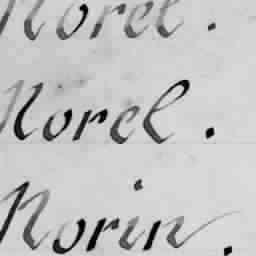 Norel.
Norel.
Norin.